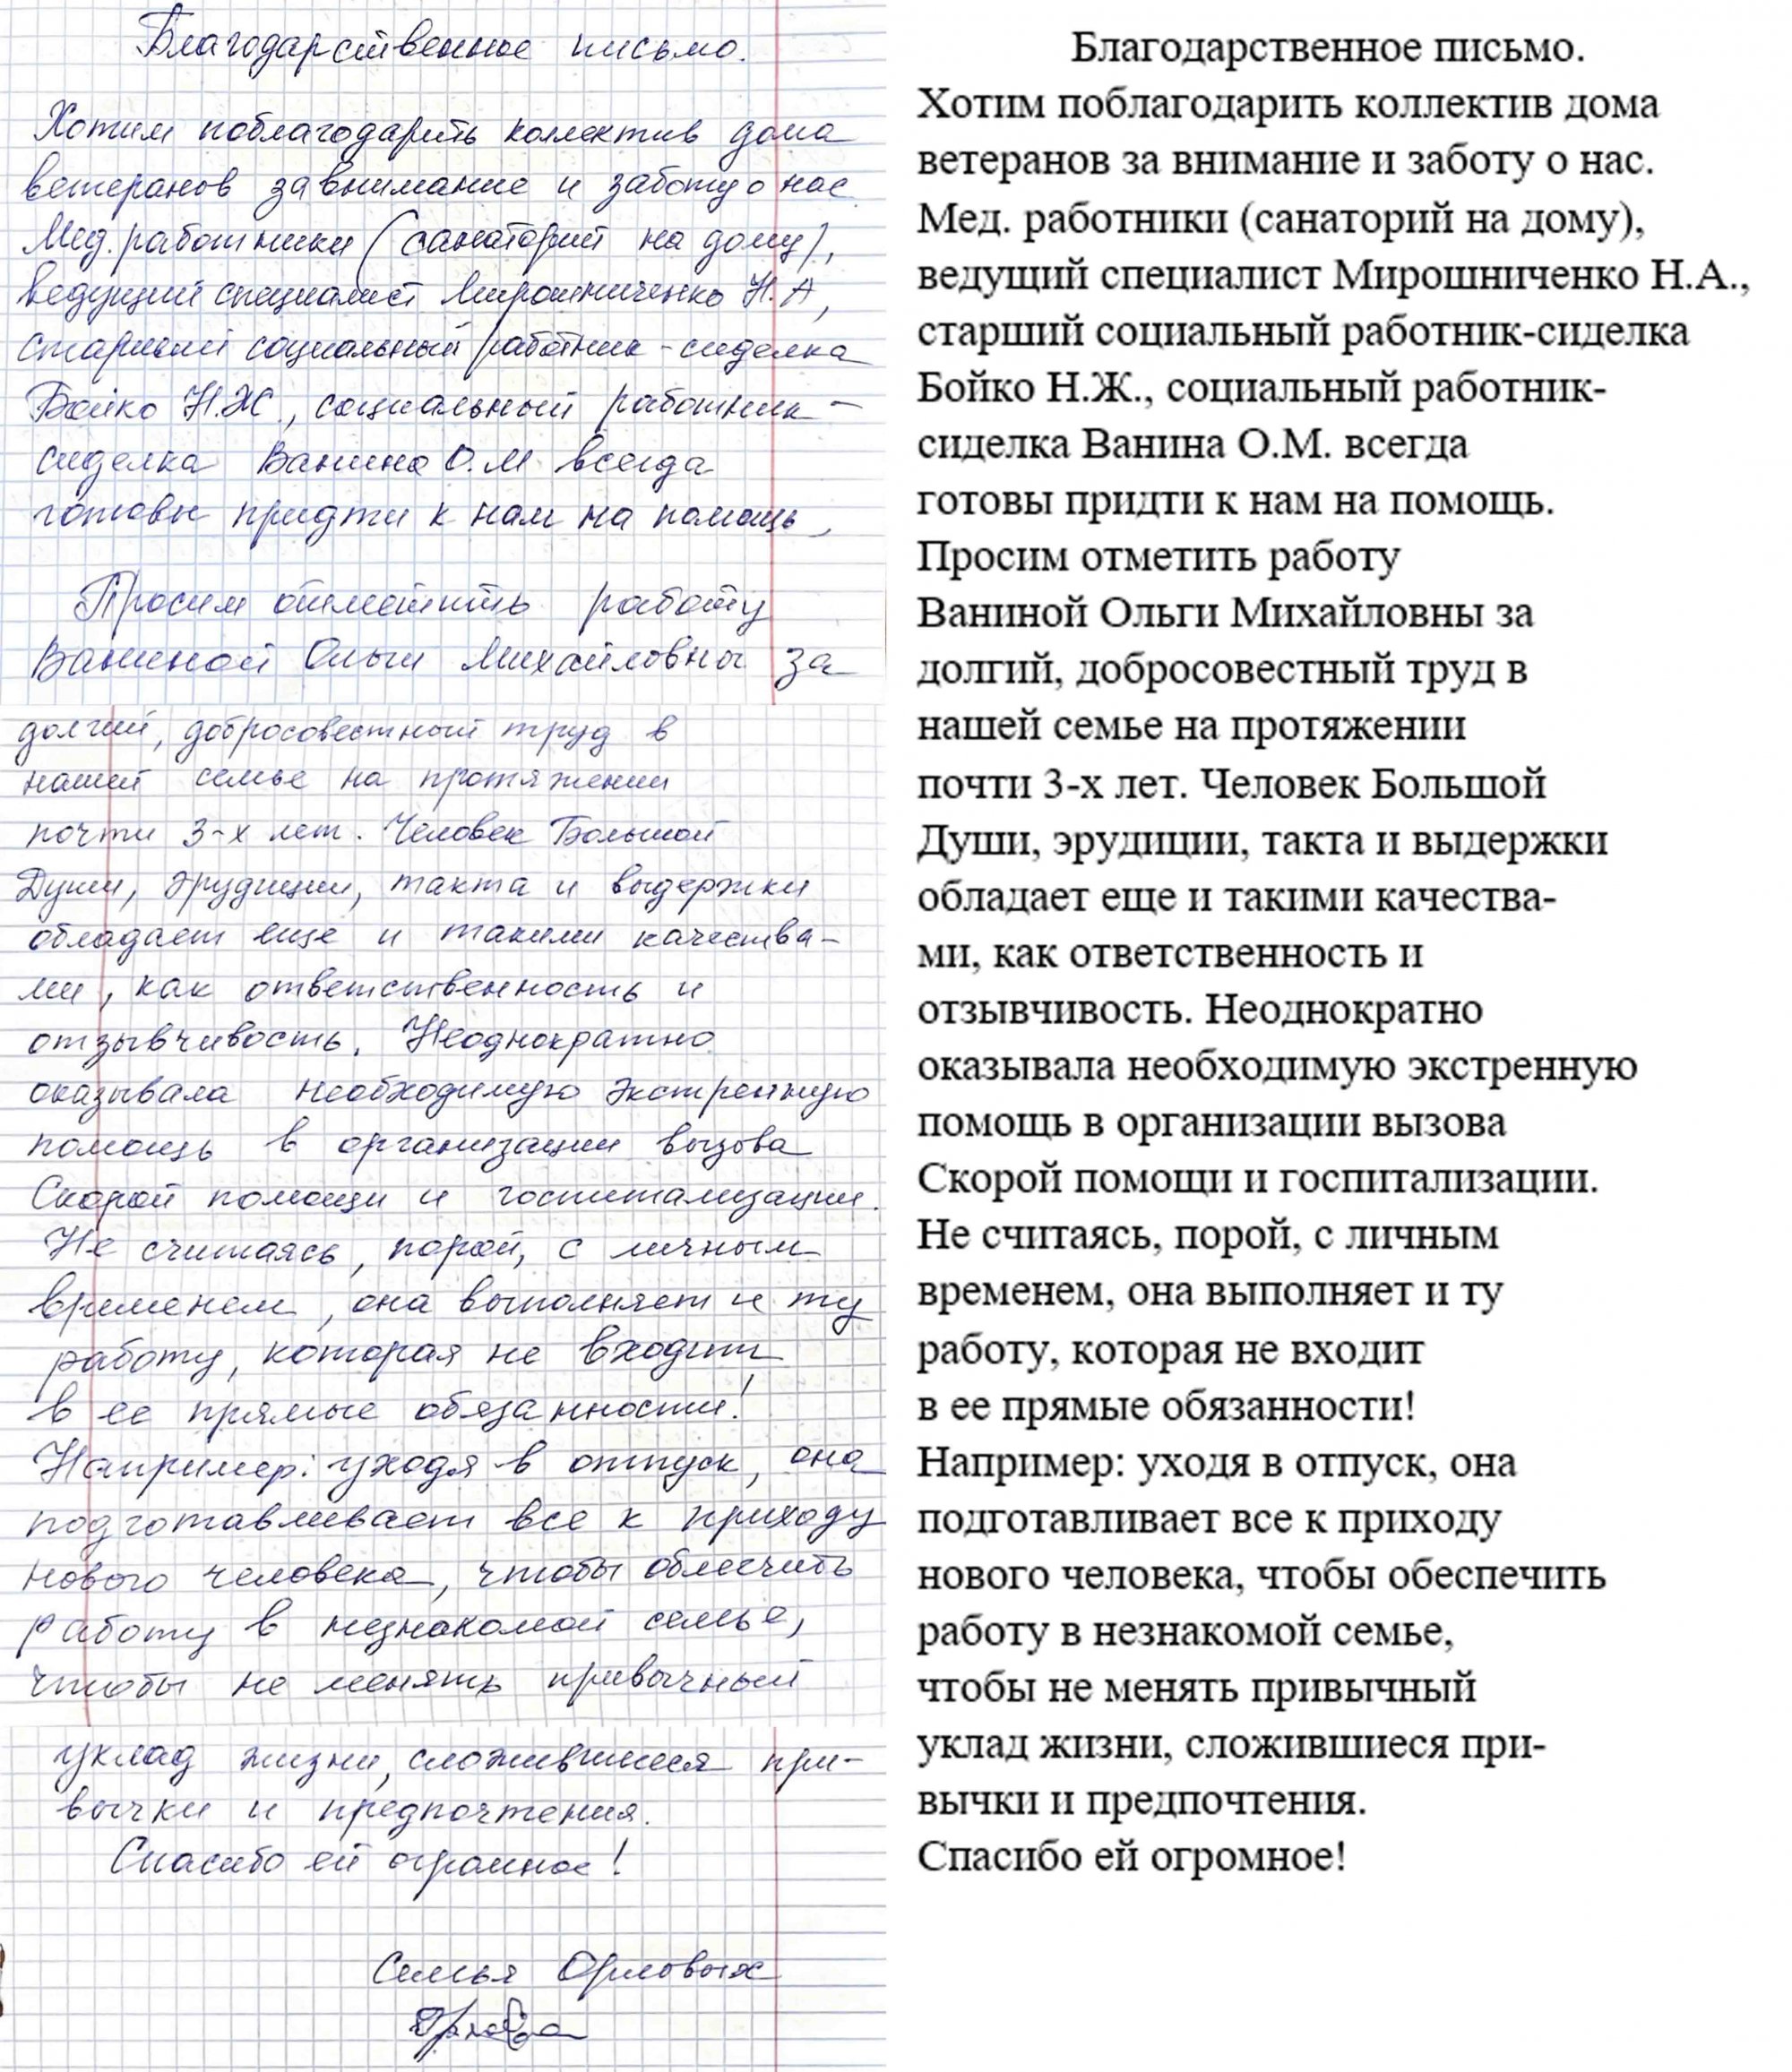 Благодарственное письмо.
Хотим поблагодарить коллектив дома
ветеранов за внимание и заботу о нас
Мед. работники (санаторий на дому),
ведущий специалист Мирошниченко Н.А,
старший социальный работник-сиделка
Бойко Н.Ж., социальный работник-
сиделка Ванина О.М всегда
готовы придти к нам на помощь.
Просим отметить работу
Ваниной Ольги Михайловны за
долгий, добросовестный труд в
нашей семье на протяжении
почти 3-х лет. Человек Большой
Души, эрудиции, такта и выдержки
обладает еще и такими качества-
ми, как ответственность и
отзывчивость. Неоднократно
оказывала необходимую экстренную
помощь в организации вызова
Скорой помощи и госпитализации.
Не считаясь, порой, с личным
временем, она выполняет и ту
работу, которая не входит
в ее прямые обязанности!
Например: уходя в отпуск, она
подготавливает все к приходу
нового человека, чтобы облегчить
работу в незнакомой семье,
чтобы не менять привычный
уклад жизни, сложившиеся при-
вычки и предпочтения.
Спасибо ей огромное!
Семья Орловых
Орлова
Благодарственное письмо.
Хотим поблагодарить коллектив дома
ветеранов за внимание и заботу о нас.
Мед. работники (санаторий на дому),
ведущий специалист Мирошниченко Н.А.,
старший социальный работник-сиделка
Бойко Н.Ж., социальный работник-
сиделка Ванина О.М. всегда
готовы придти к нам на помощь.
Просим отметить работу
Ваниной Ольги Михайловны за
долгий, добросовестный труд в
нашей семье на протяжении
почти 3-х лет. Человек Большой
Души, эрудиции, такта и выдержки
обладает еще и такими качества-
ми, как ответственность и
отзывчивость. Неоднократно
оказывала необходимую экстренную
помощь в организации вызова
Скорой помощи и госпитализации.
Не считаясь, порой, с личным
временем, она выполняет и ту
работу, которая не входит
в ее прямые обязанности!
Например: уходя в отпуск, она
подготавливает все к приходу
нового человека, чтобы обеспечить
работу в незнакомой семье,
чтобы не менять привычный
уклад жизни, сложившиеся при-
вычки и предпочтения.
Спасибо ей огромное!